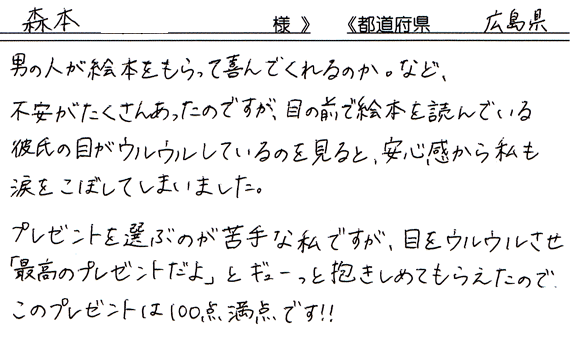 森本 様 》 《都道府県 広島県
男の人が絵本をもらって喜んでくれるのか。など、
不安がたくさんあったのですが、目の前で絵本を読んでいる
彼氏の目がウルウルしているのを見ると、安心感から私も
涙をこぼしてしまいました。
プレゼントを選ぶのが苦手な私ですが、目をウルウルさせ
「最高のプレゼントだよ」とギューっと抱きしめてもらえたので
このプレゼントは100点満点です!!